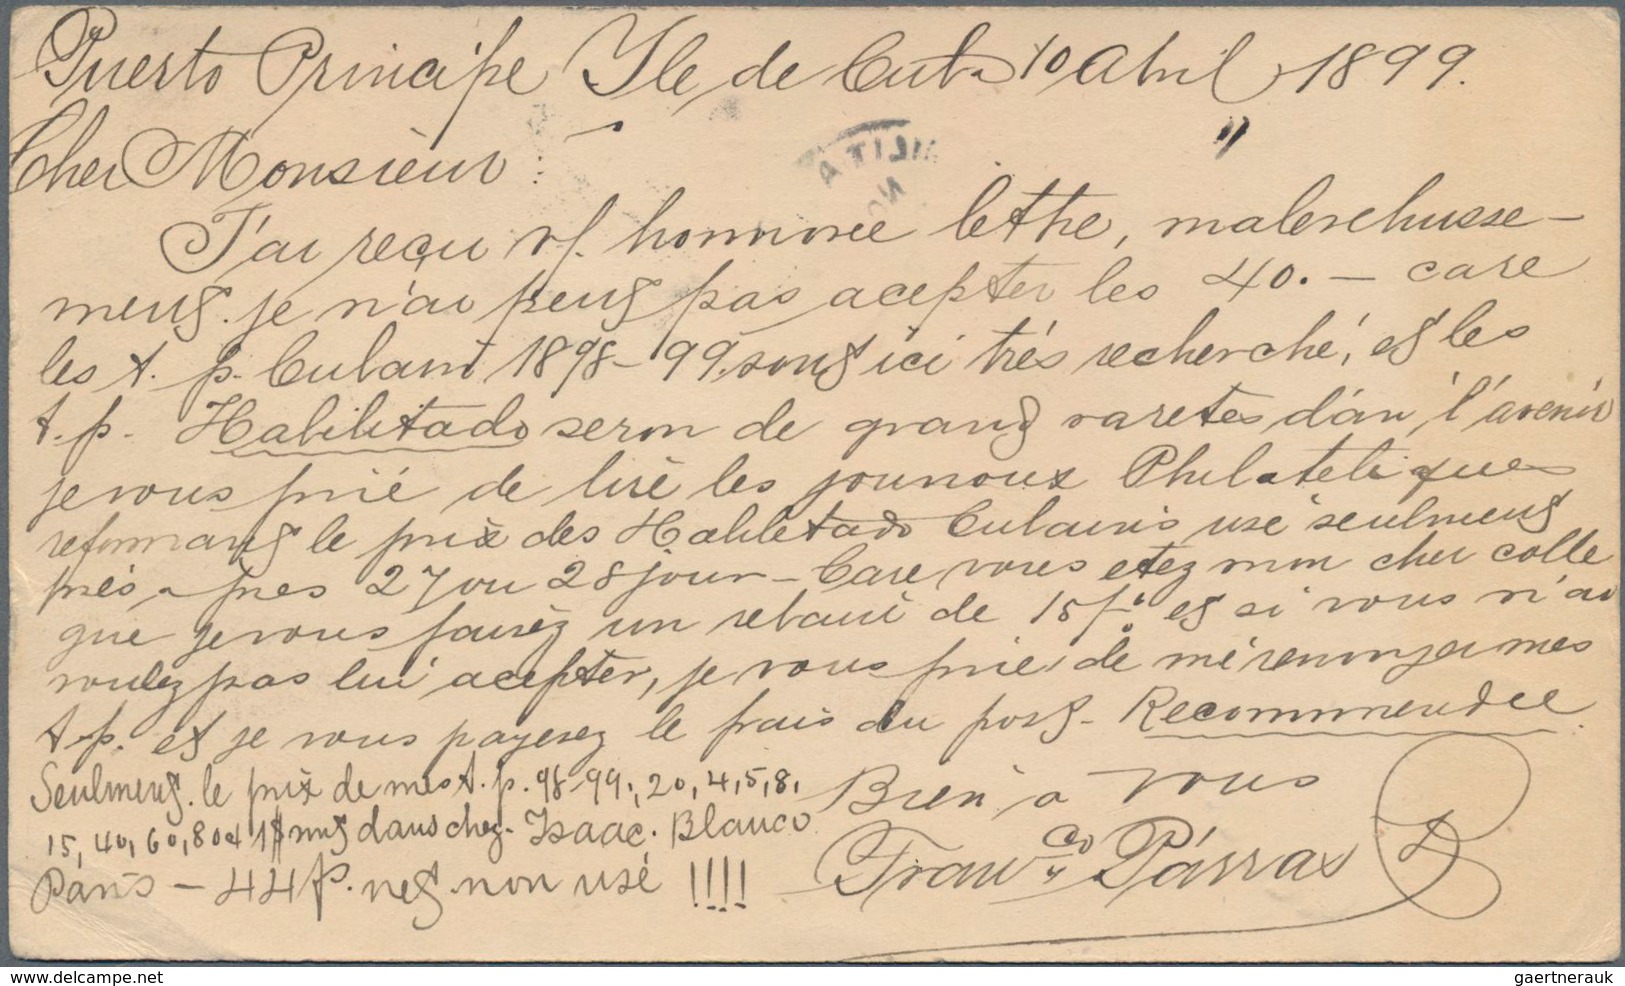 Puerto Principe Yle de Cuba 10 Abril 1899.
Cher Monsieur :
J'ai reçu vf. honnoree lettre, malerehusse-
meng. je n'ai peug pas acepter les 40. — care
les t. p. Cubani 1898-99. song ici trés recherché, eg les
t. p. Habilitado seron de grang raretes dan l'avenir
je vous prié de liré les jounoux Philateliques
reformang le prix des Habilitado Cubains usé seulmeng
prés a pres 27 ou 28 jour — Care vous etez mon cher colle
gue je vous fairéz un rebait de 15 f. eg si vous n'ai
voulez pas lui acepter, je vous prie de mé renvojer mes
t. p. eg je vous payerez le frais du posg. Recommendee
Seulmeng. le prix de mes t. p. 98-99., 20, 4, 5, 8,
15, 40, 60, 80 1$ dans chez. Isaac. Blanco
Paris — 44 f. neg. non usé !!!!
Bien a vous
Franco Párras
MILITA
delcampe.net
gaertnerauk